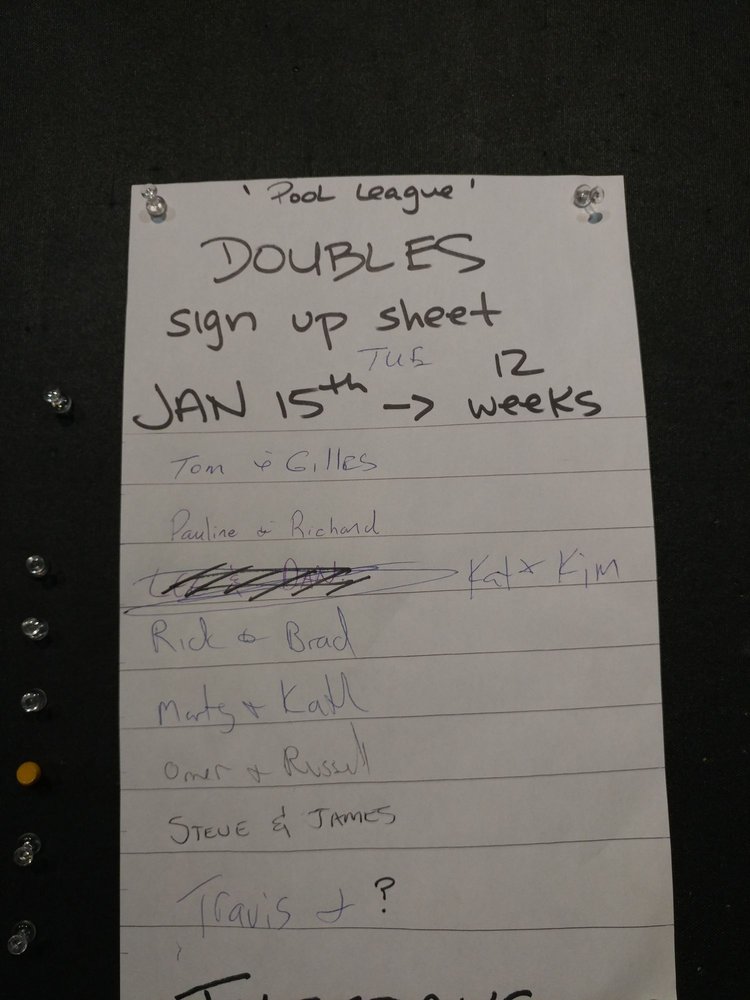 'Pool League'
DOUBLES
sign up sheet
TUE 12
JAN 15th -> weeks
Tom & Gilles
Pauline & Richard
Kat & Kim
Rick & Brad
Marty &
Omer & Russell
STEVE & JAMES
Travis & ?